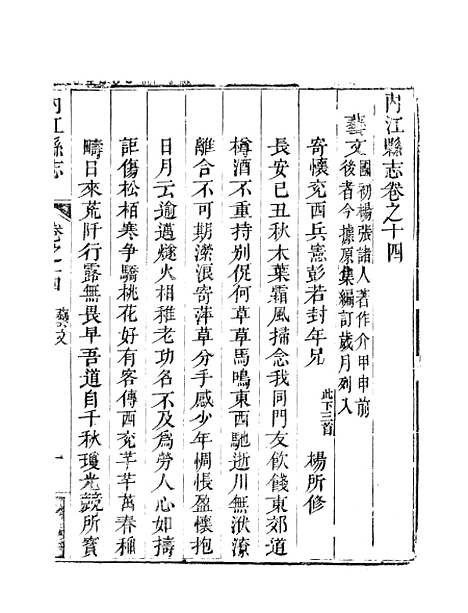 內江縣志卷之十四
藝文國初楊張諸人著作介甲申前
後者今據原集編訂歲月列入
寄懷兗西兵憲彭若封年兄 此下三首 楊所修
長安已丑秋木葉霜風掃念我同門友飲餞東郊道
樽酒不重持別促何草草馬鳴東西馳逝川無洑潦
離合不可期濚浪寄萍草分手感少年惆悵盈懷抱
日月云逾邁燧火相雜老功名不及為勞人心如擣
詎傷松栢寒爭驕桃花好有客傳西兗芊芊萬春稱
疇日來荒阡行露無畏早吾道自千秋瓊光競所寳
內江縣志
卷之十四 藝文
一